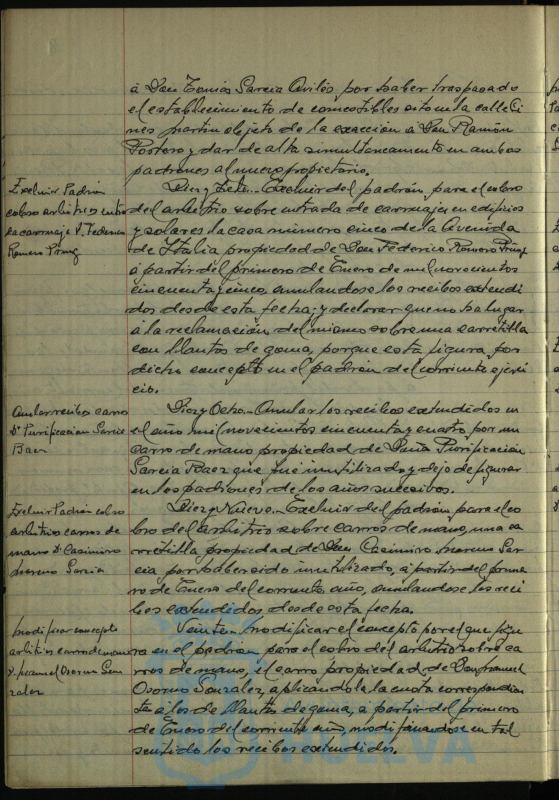 á Don Tomás García Avilés por haber traspasado
el establecimiento de comestibles sito en la calle Gi
nes Martín objeto de la exacción á Don Ramón
y dar de alta simultaneamente en ambos
padrones al nuevo propietario.
Excluir Padrón
cobro arbitrios entra
da carruaje D. Federico
Romero
Diez y Siete.- Excluir del padrón para el cobro
del arbitrio sobre entrada de carruajes en edificios
y solares la casa número cinco de la Avenida
de Italia propiedad de Don Federico Romero
á partir del primero de Enero de mil novecientos
cincuenta y cinco, anulandose los recibos extendi
dos desde esta fecha; y declarar que no ha lugar
á la reclamación del mismo sobre una carretilla
con llantas de goma, porque esta figura por
dicho concepto en el padrón del corriente ejerci
cio.
Anular recibos carro
Dª Purificación García
Baez
Diez y Ocho.- Anular los recibos extendidos en
el año mil novecientos cincuenta y cuatro por un
carro de mano propiedad de Doña Purificación
García Baez que fué inutilizado y dejo de figurar
en los padrones de los años sucesivos.
Excluir Padrón cobro
arbitrios carros de
mano D. Casimiro
Moreno García
Diez y Nueve.- Excluir del padrón para el co
bro del arbitrio sobre carros de mano, una ca
rretilla propiedad de Don Casimiro Moreno Gar
cia por haber sido inutilizado, á partir del prime
ro de Enero del corriente año, anulandose los reci
bos extendidos desde esta fecha.
Modificar concepto
arbitrios carro de mano
D. Manuel Osorno Gon
zalez
Veinte.- Modificar el concepto por el que figu
ra en el padrón para el cobro del arbitrio sobre ca
rros de mano, el carro propiedad de Don Manuel
Osorno Gonzalez, aplicandole la cuota correspondien
te á los de llantas de goma, á partir del primero
de Enero del corriente año, modificandose en tal
sentido los recibos extendidos.
HUELVA